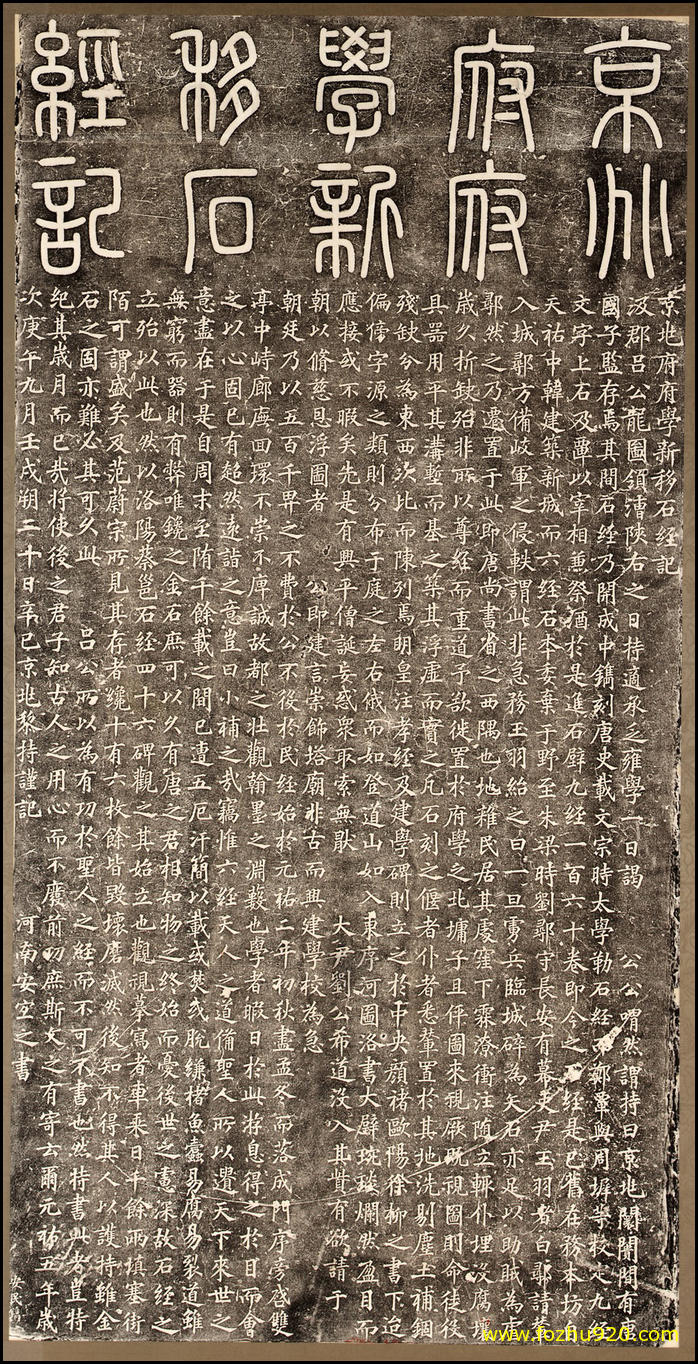 京兆
府府
學新
移石
經記
京兆府府學新移石經記
汲郡呂公龍圖領漕陝右之日持適承乏雍學一日謁 公公喟然謂持曰京兆闤闠間有唐
國子監存焉其間石經乃開成中鐫刻唐史載文宗時太學勒石經而鄭覃與周墀等校定九經
文字上石及覃以宰相兼祭酒於是進石壁九經一百六十卷即今之石經是已舊在務本坊自
天祐中韓建築新城而六經石本委棄于野至朱梁時劉鄩守長安有幕吏尹玉羽者白鄩請輦
入城鄩方備岐軍之侵軼謂此非急務玉羽紿之曰一旦虜兵臨城碎為矢石亦足以助賊為虐
鄩然之乃遷置于此即唐尚書省之西隅也地雜民居其處窪下霖潦衝注隨立輒仆埋沒腐壞
歲久折缺殆非所以尊經而重道予欲徙置於府學之北墉子且伻圖來視厥既視圖則命徒役
具器用平其溝塹而基之築其浮虛而實之凡石刻之偃者仆者悉輦置於其地洗剔塵土補錮
殘缺分為東西次比而陳列焉明皇注孝經及建學碑則立之於中央顏褚歐陽徐柳之書下迨
偏傍字源之類則分布于庭之左右俄而如登道山如入東序河圖洛書大璧琬琰爛然盈目而
應接或不暇矣先是有興平僧誕妄惑衆取索無猒 大尹劉公希道沒入其貲有欲請于
朝以脩慈恩浮圖者 公即建言崇飾塔廟非古而興建學校為急
朝廷乃以五百千畀之不費於公不役於民經始於元祐二年初秋盡孟冬而落成門序旁啓雙
亭中峙廊廡回環不崇不庳誠故都之壯觀翰墨之淵藪也學者暇日於此游息得之於目而會
之以心固已有超然遠詣之意豈曰小補之哉竊惟六經天人之道備聖人所以遺天下來世之
意盡在于是自周末至隋千餘載之間已遭五厄汗簡以載或焚或脫縑楮魚蠹易腐易裂道雖
無窮而器則有弊唯鑱之金石庶可以久有唐之君相知物之終始而憂後世之慮深故石經之
立殆以此也然以洛陽蔡邕石經四十六碑觀之其始立也觀視摹寫者車乘日千餘兩填塞街
陌可謂盛矣及范蔚宗所見其存者纔十有六枚餘皆毀壞磨滅然後知不得其人以護持雖金
石之固亦難必其可久此 呂公所以為有功於聖人之經而不可不書也然持書此者豈特
紀其歲月而已哉將使後之君子知古人之用心而不廢前功庶斯文之有寄云爾元祐五年歲
次庚午九月壬戌朔二十日辛巳京兆黎持謹記 河南安宜之書
安民鐫
www.fozhu920.com